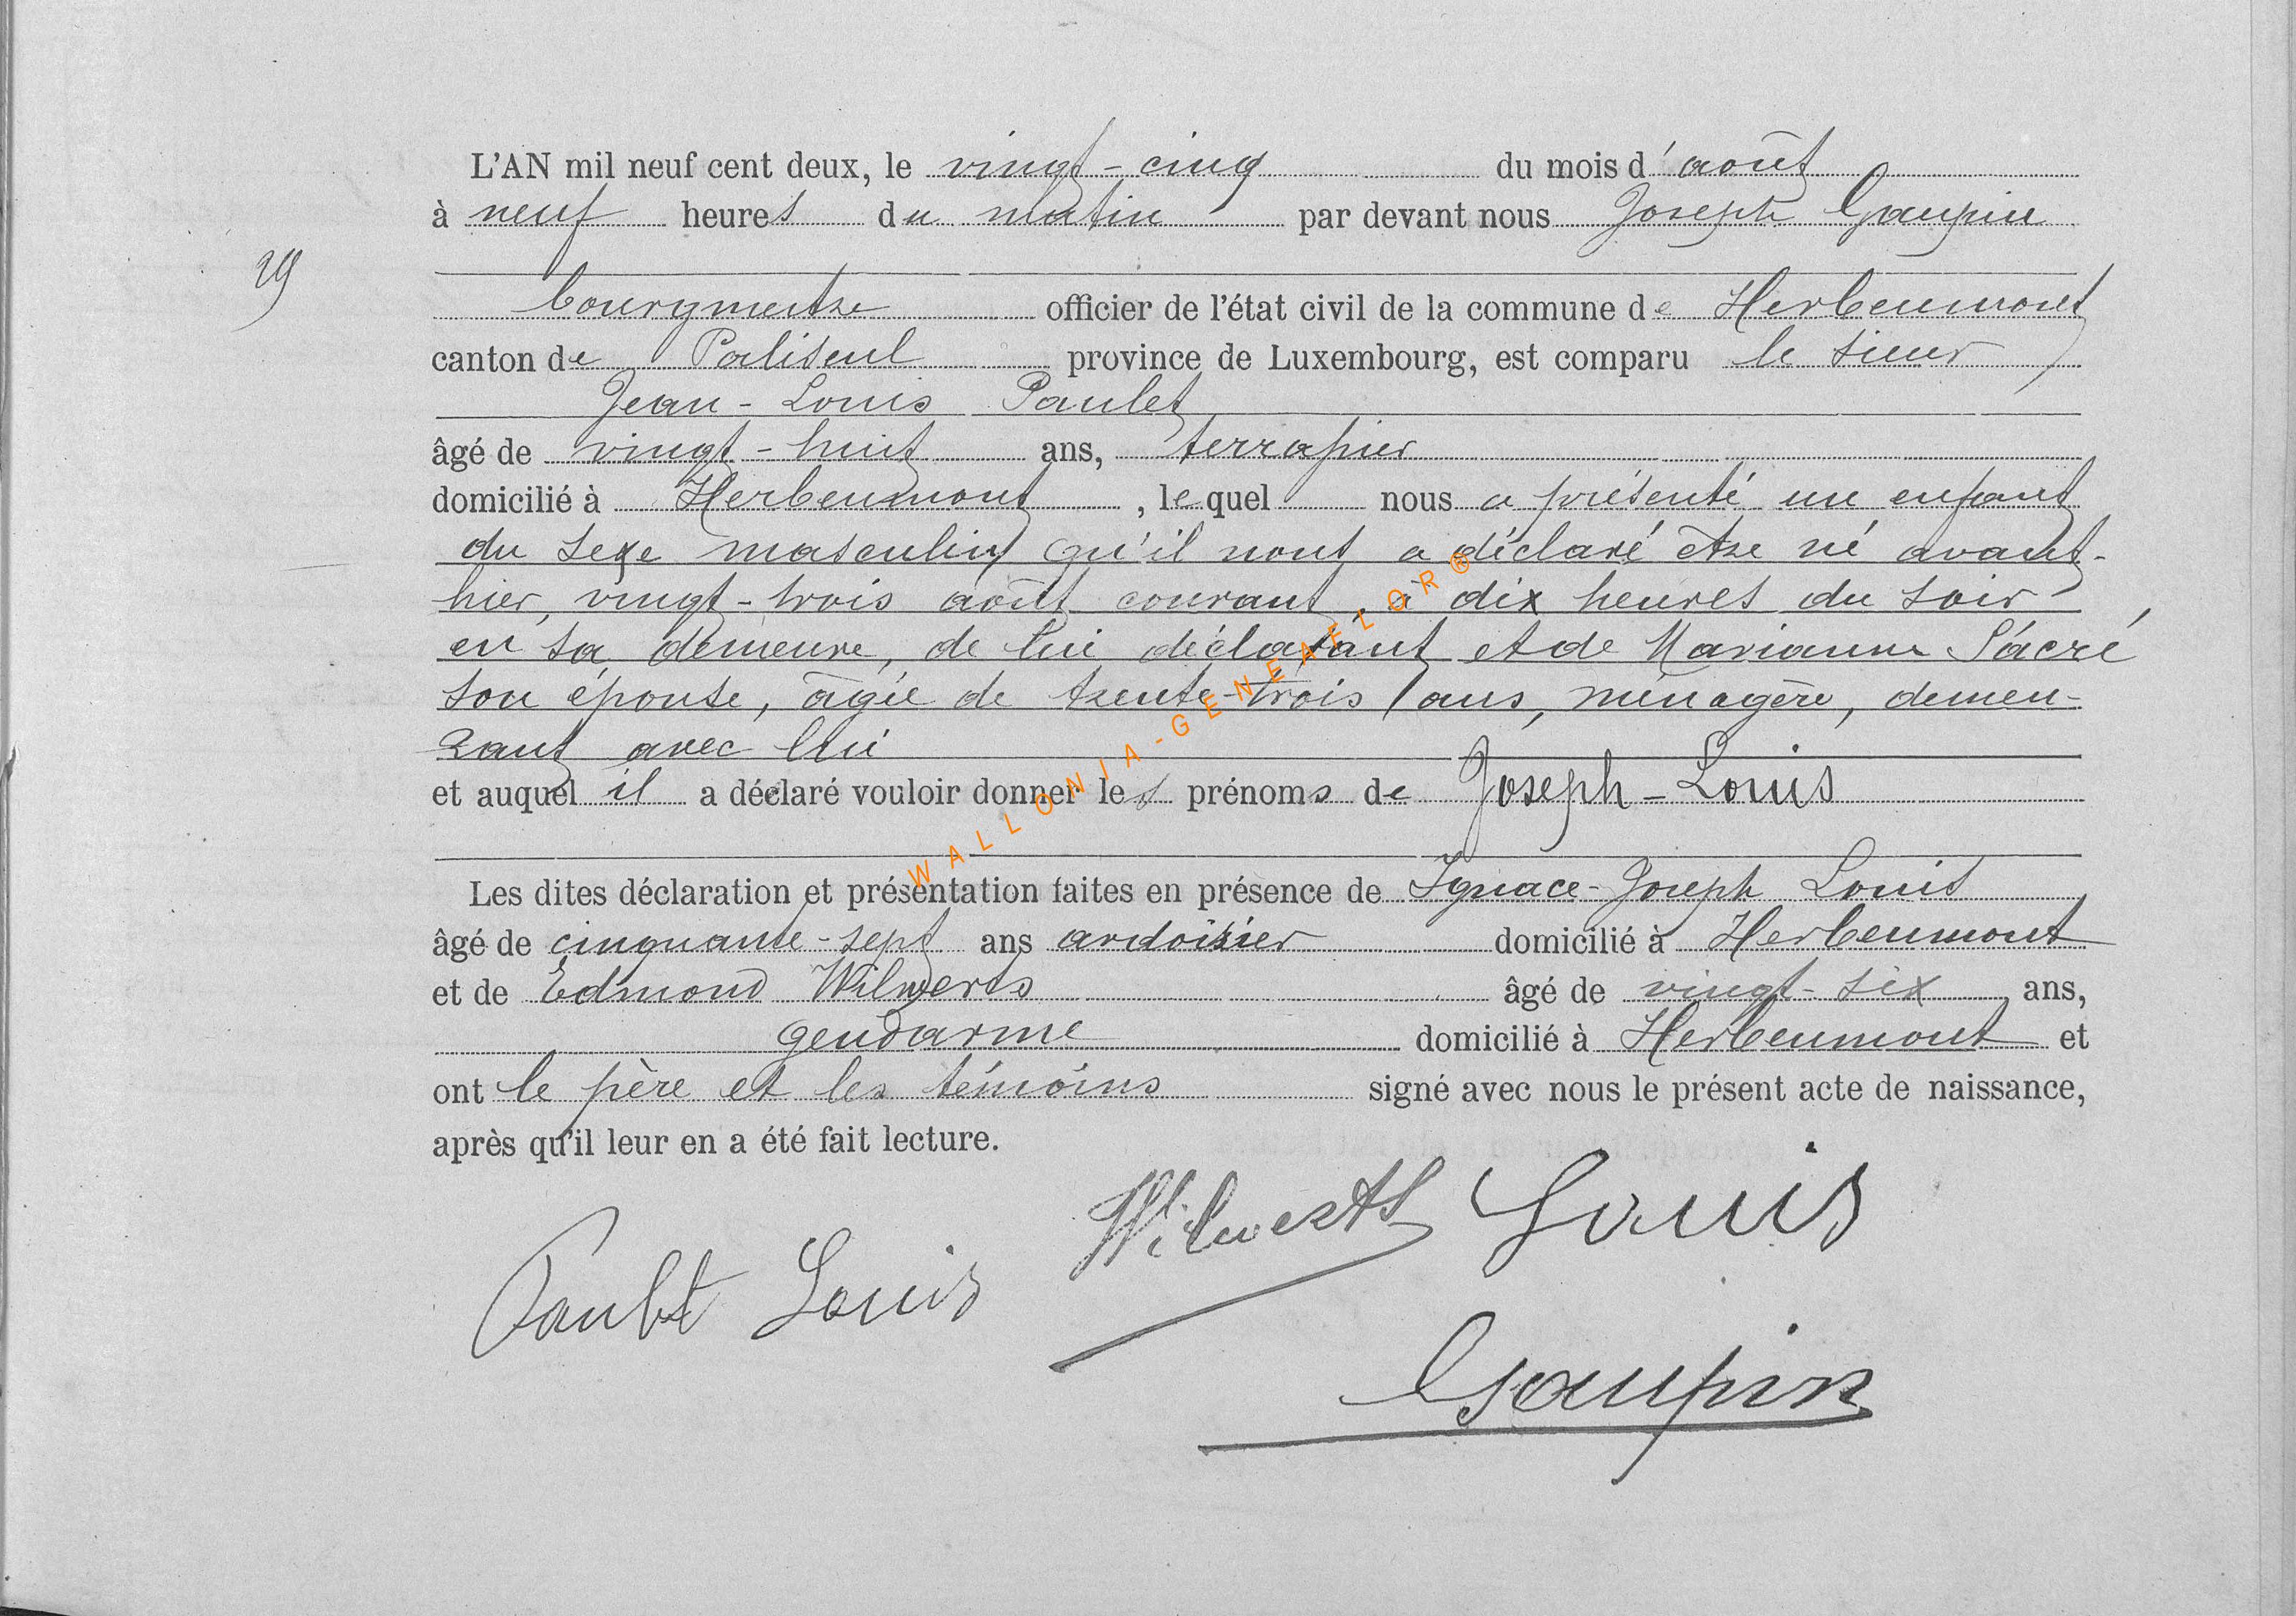 L'AN mil neuf cent deux, le vingt-cinq du mois d'août
à neuf heures du matin par devant nous Joseph Gaupin
29
bourgmestre officier de l'état civil de la commune de Herbeumont
canton de Paliseul province de Luxembourg, est comparu le sieur
Jean-Louis Paulet
âgé de vingt-huit ans, terrassier
domicilié à Herbeumont, lequel nous a présenté un enfant
du sexe masculin qu'il nous a déclaré être né avant-
hier, vingt-trois août courant, à dix heures du soir
en sa demeure, de lui déclarant et de Marianne Sacré
son épouse, âgée de trente-trois ans, ménagère, demeu-
rant avec lui
et auquel il a déclaré vouloir donner les prénoms de Joseph-Louis
Les dites déclaration et présentation faites en présence de Ignace-Joseph Louis
âgé de cinquante-sept ans ardoisier domicilié à Herbeumont
et de Edmond Wilwerts âgé de vingt-six ans,
gendarme domicilié à Herbeumont et
ont le père et les témoins signé avec nous le présent acte de naissance,
après qu'il leur en a été fait lecture.
Wilwerts Louis
Paulet Louis
Gaupin
WALLONIA-GENEAELOR®